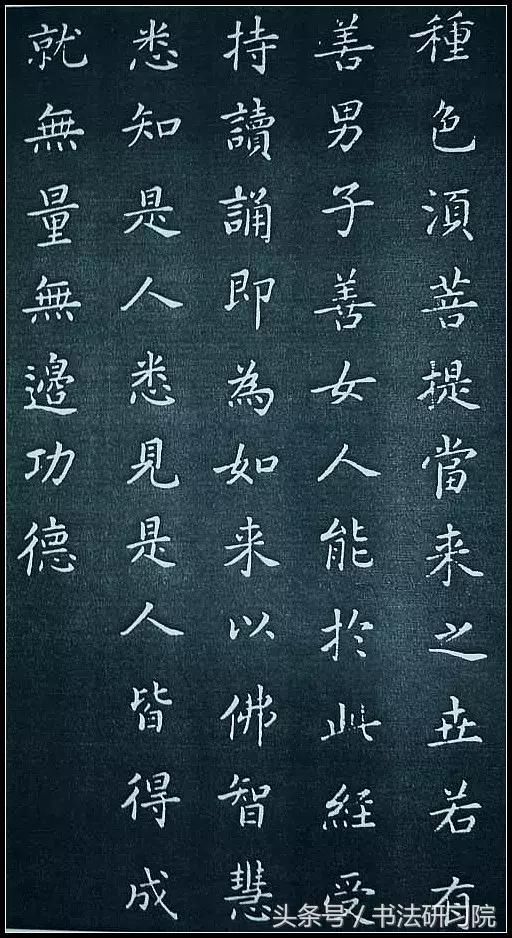 種色須菩提當来之世若有
善男子善女人能於此經受
持讀誦即為如来以佛智慧
悉知是人悉見是人皆得成
就無量無邊功德
头条号 / 书法研习院